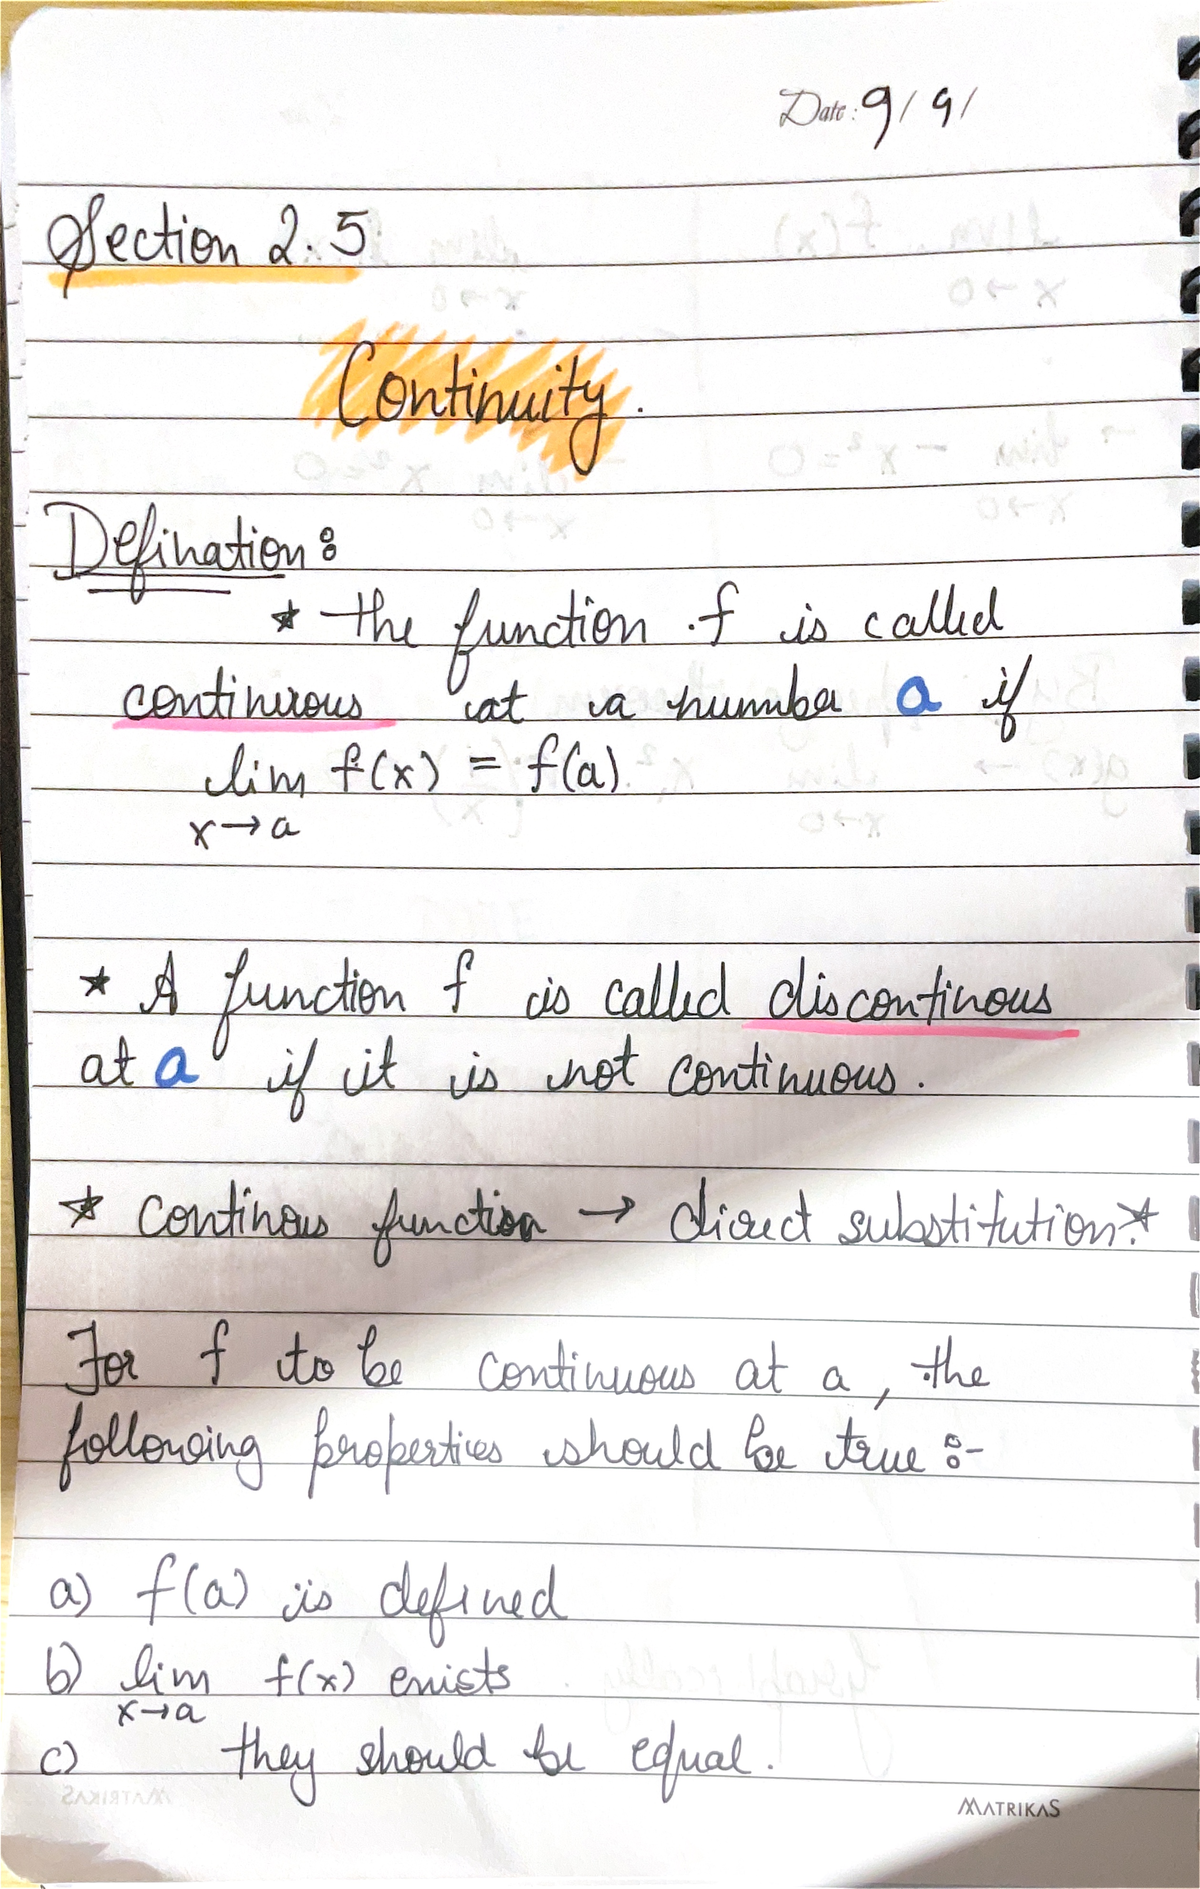 Date: 9/ 9/
Section 2.5
Continuity.
Defination:
* the function f is called
continuous at a number a if
lim f(x) = f(a).
x→a
* A function f is called discontinous
at a if it is not continuous.
* continous function → direct substitution.*
For f to be continuous at a, the
following properties should be true :-
a) f(a) is defined
b) lim f(x) exists.
x→a
c) they should be equal.
MATRIKAS